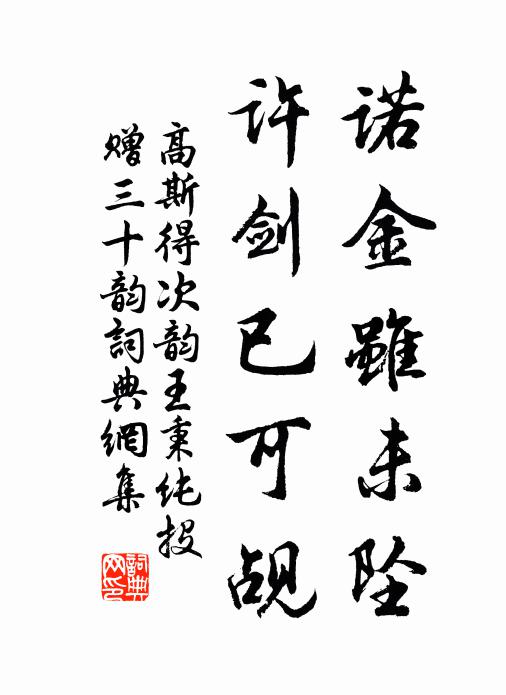 诺金雖未坠
许剑已可觇
高斯得次韵王秉纯投
赠三十韵詞典網集
詞典网印